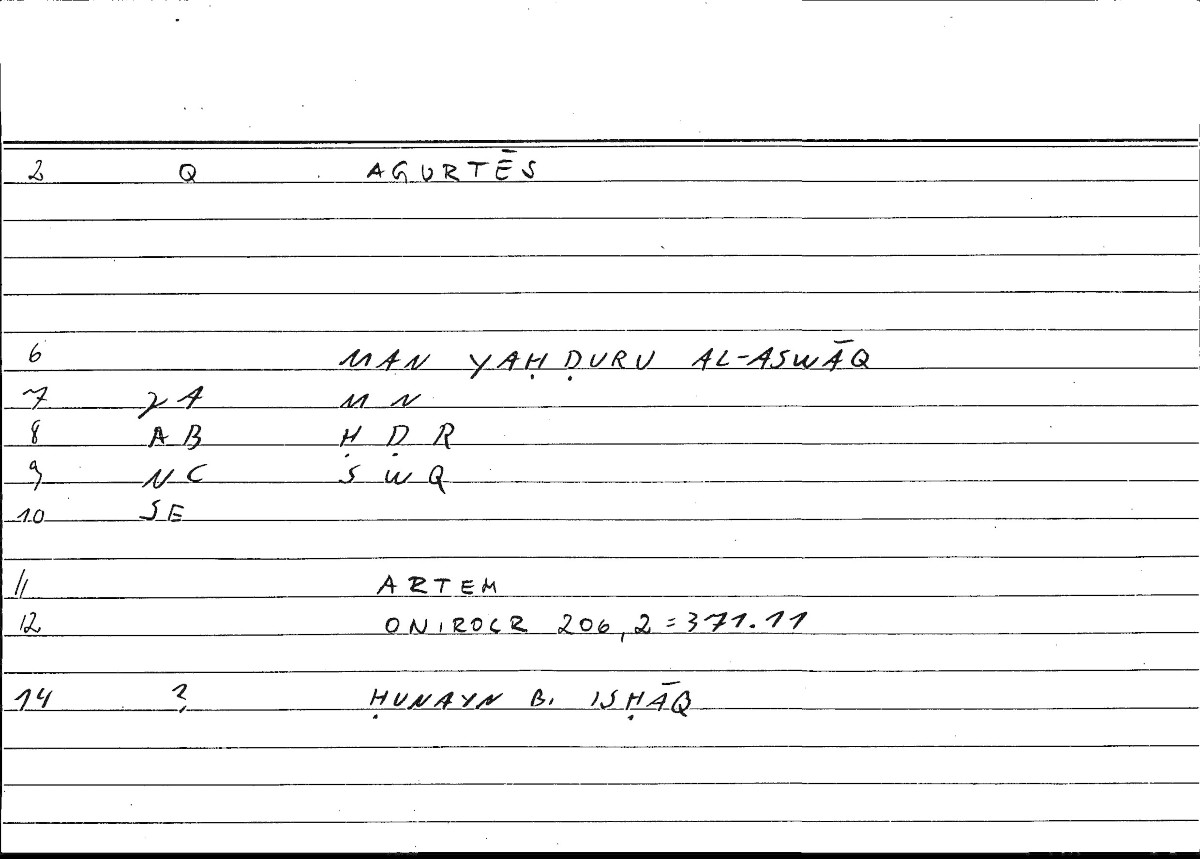 2 Q AGURTĒS
6 MAN YAḤḌURU AL-ASWĀQ
7 γA M N
8 AB Ḥ Ḍ R
9 NC S W Q
10 SE
11 ARTEM
12 ONIROCR 206,2=371.11
14 ? ḤUNAYN B. ISḤĀQ